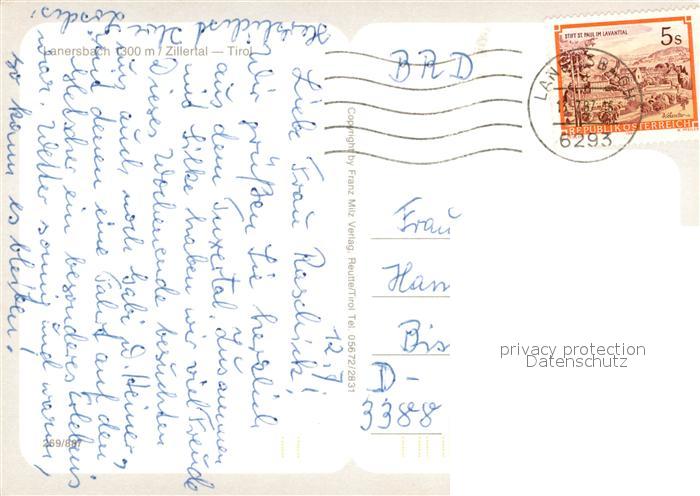 Lanersbach 1300 m / Zillertal — Tirol
12.7.
Liebe Frau Raschick!
Wir grüßen Sie herzlich
aus dem Tuxertal. Zusammen
mit Silke haben wir viel Freude
Dieses Wochenende besuchten
uns auch noch Gabi u. Heiner,
mit denen eine Fahrt auf den
Gletscher ein besonderes Erlebnis
war. Wetter sonnig und warm,
so kann es bleiben!
Herzlichst Ihre
BRD
Frau
Han
Bis
D-
3388
Copyright by Franz Milz Verlag, Reutte/Tirol Tel. 05672/2831
269/887
STIFT ST. PAUL IM LAVANTTAL
5 S
REPUBLIK ÖSTERREICH
LANERSBACH
6293
privacy protection
Datenschutz